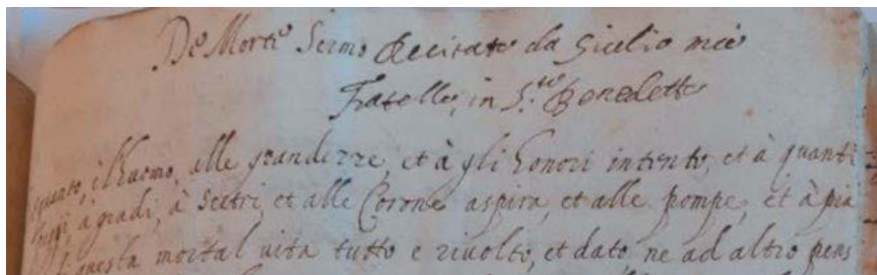 De Morte Sermo Recitato da Giulio mio
Fratello, in S.to Benedetto
quanto, il huomo, alle grandezze, et à gli honori intento, et à quanti
à gradi, à Scetri, et alle Corone aspira, et alle pompe, et à pia
questa mortal vita tutto e rivolto, et dato ne ad altro pens